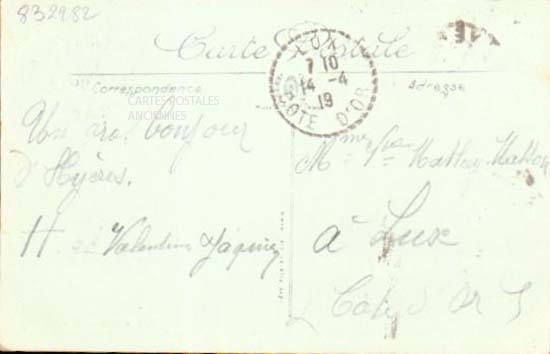 832982
Carte Postale
Correspondance
Adresse
LUX
7 10
14-4
19
COTE D'OR
CARTES POSTALES
ANCIENNES
Un bonjour
d'Hyères.
H et Valentine
Mme Vve Mathey
à Lux
Côte d'Or